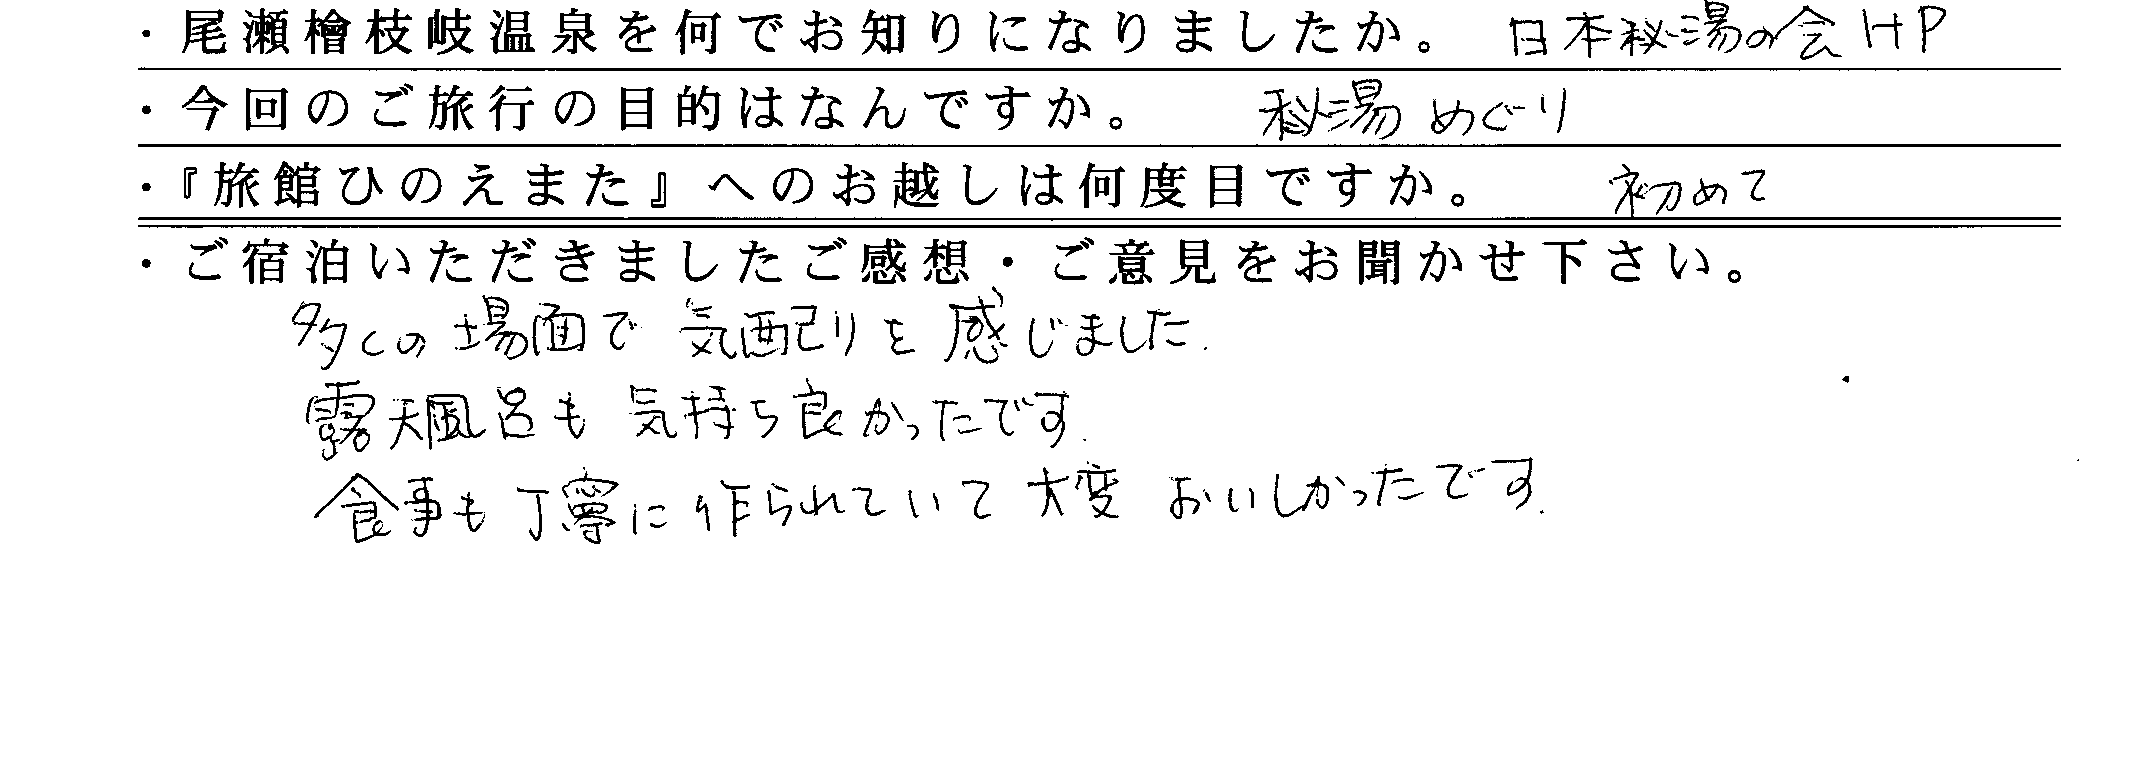 ・尾瀬檜枝岐温泉を何でお知りになりましたか。 日本秘湯の会HP
・今回のご旅行の目的はなんですか。 秘湯めぐり
・『旅館ひのえまた』へのお越しは何度目ですか。 初めて
・ご宿泊いただきましたご感想・ご意見をお聞かせ下さい。
多くの場面で気配りを感じました.
露天風呂も気持ち良かったです.
食事も丁寧に作られていて大変おいしかったです.